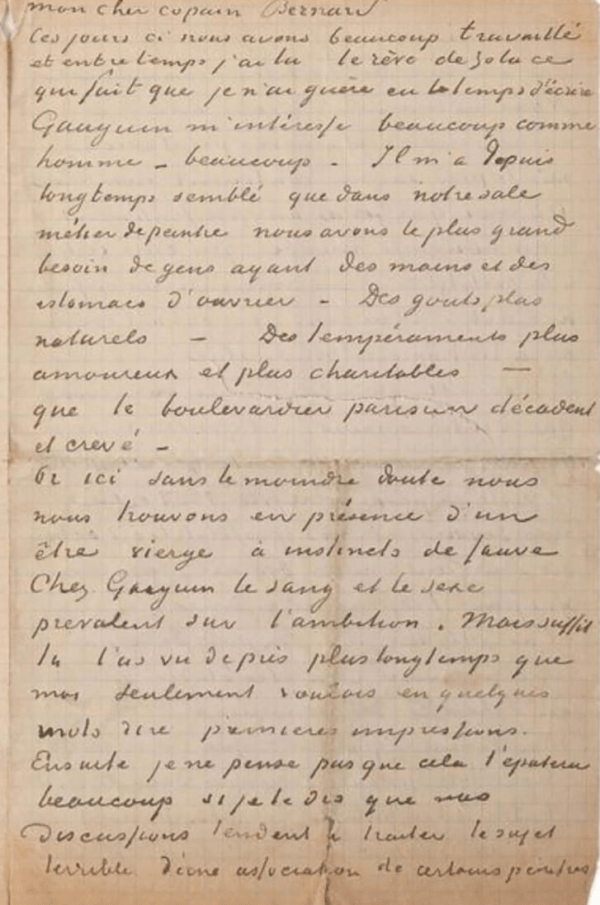 mon cher copain Bernard
Ces jours ci nous avons beaucoup travaillé
et entretemps j'ai lu le rêve de Zola ce
qui fait que je n'ai guère eu le temps d'écrire
Gauguin m'intéresse beaucoup comme
homme – beaucoup – Il m'a depuis
longtemps semblé que dans notre sale
métier de peintre nous avons le plus grand
besoin de gens ayant des mains et des
estomacs d'ouvrier – Des gouts plus
naturels – Des tempéraments plus
amoureux et plus charitables —
que le boulevardier parisien décadent
et crevé –
Or ici sans le moindre doute nous
nous trouvons en présence d'un
être vierge à instincts de fauve
Chez Gauguin le sang et le sexe
prevalent sur l'ambition. Mais suffit
tu l'as vu de près plus longtemps que
moi seulement voulais en quelques
mots dire premieres impressions.
Ensuite je ne pense pas que cela t'épatera
beaucoup si je te dis que nos
discussions tendent à traiter le sujet
terrible d'une association de certains peintres